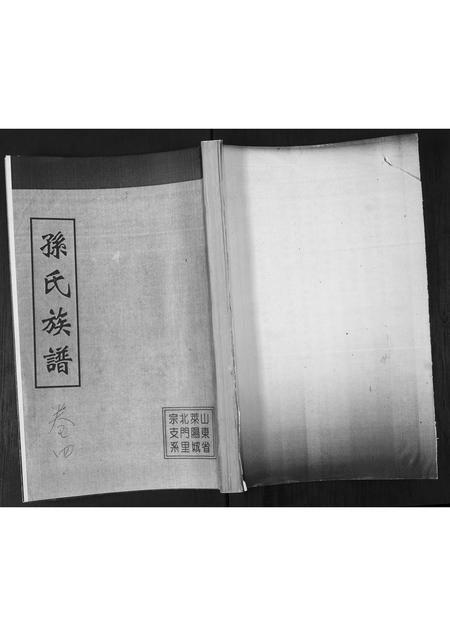 孫氏族譜
卷四
山東省
萊陽城
北門里
宗支系